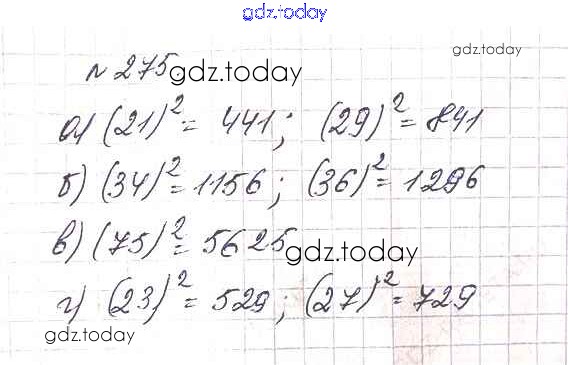 gdz.today
gdz.today
№ 275 gdz.today
а) (21)² = 441; (29)² = 841
б) (34)² = 1156; (36)² = 1296
в) (75)² = 5625 gdz.today
г) (23)² = 529; (27)² = 729
gdz.today